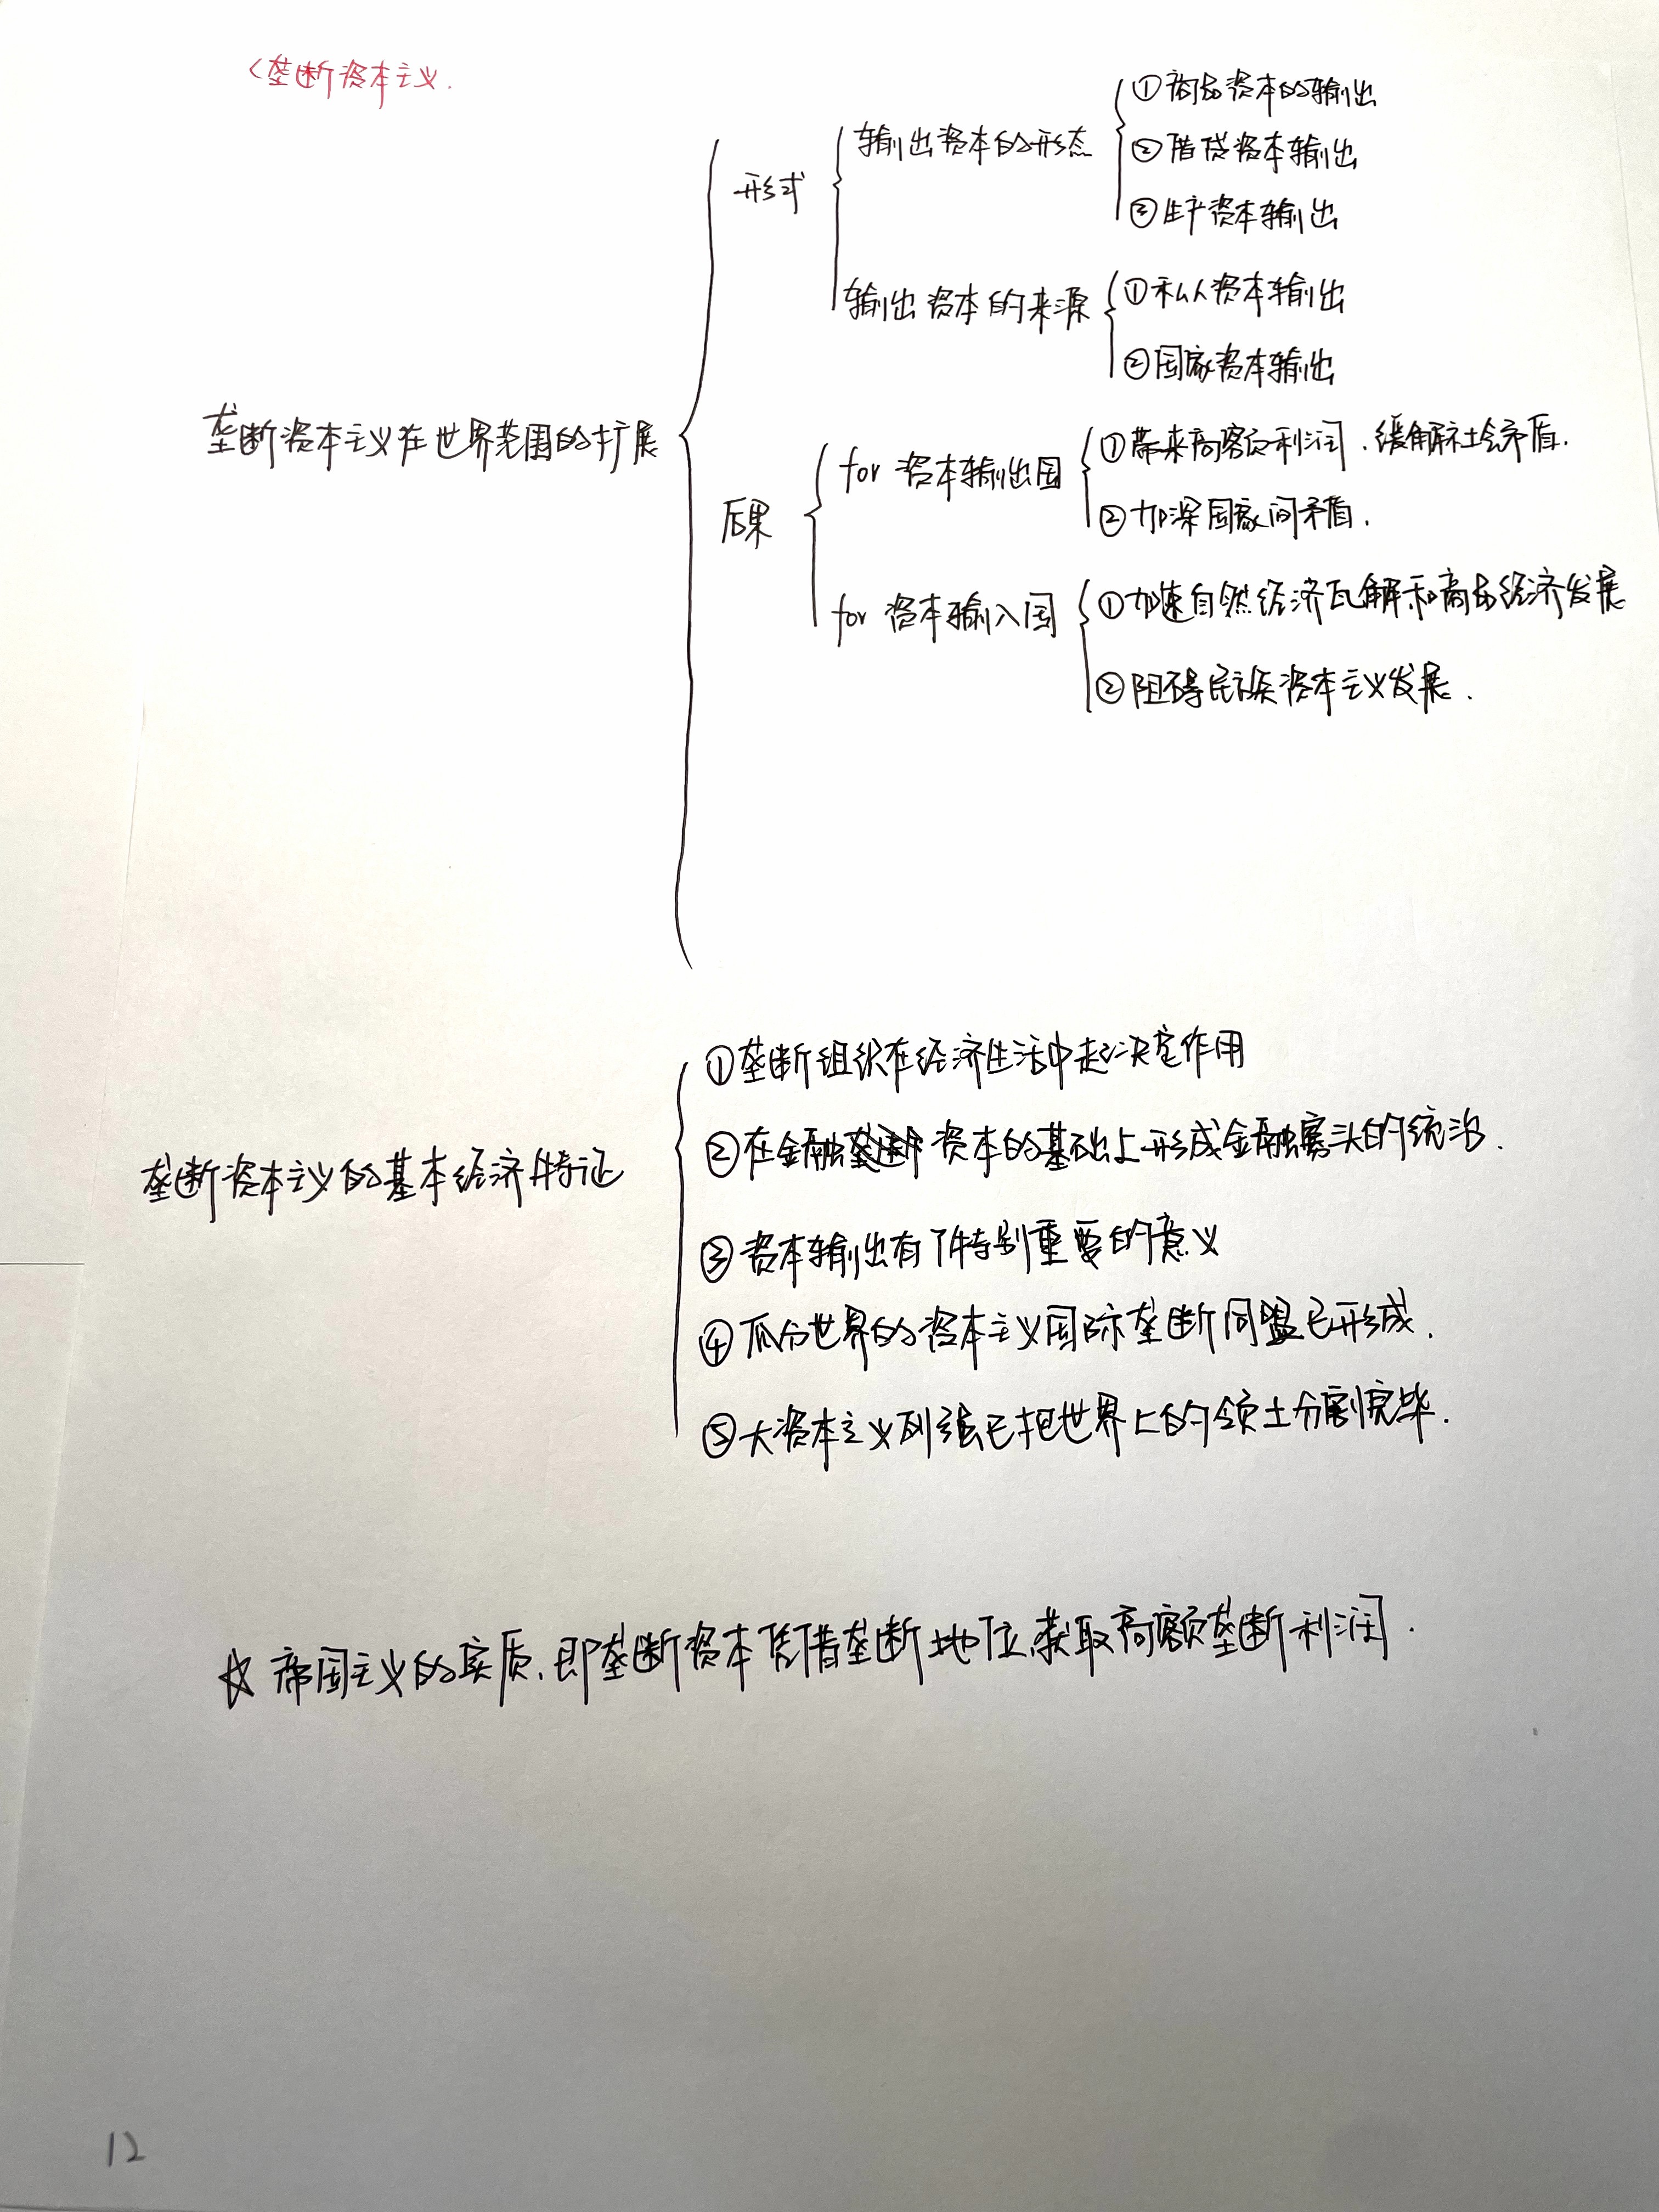 <垄断资本主义.
垄断资本主义在世界范围的扩展
形式
输出资本的形态
①商品资本的输出
②借贷资本输出
③生产资本输出
输出资本的来源
①私人资本输出
②国家资本输出
后果
for 资本输出国
①带来高额利润.缓解社会矛盾.
②加深国家间矛盾.
for 资本输入国
①加速自然经济瓦解和商品经济发展
②阻碍民族资本主义发展.
垄断资本主义的基本经济特征
①垄断组织在经济生活中起决定作用
②在金融资本的基础上形成金融寡头的统治.
③资本输出有了特别重要的意义
④瓜分世界的资本主义国际垄断同盟已形成.
⑤大资本主义列强已把世界上的领土分割完毕.
☆ 帝国主义的实质.即垄断资本凭借垄断地位,获取高额垄断利润.
12